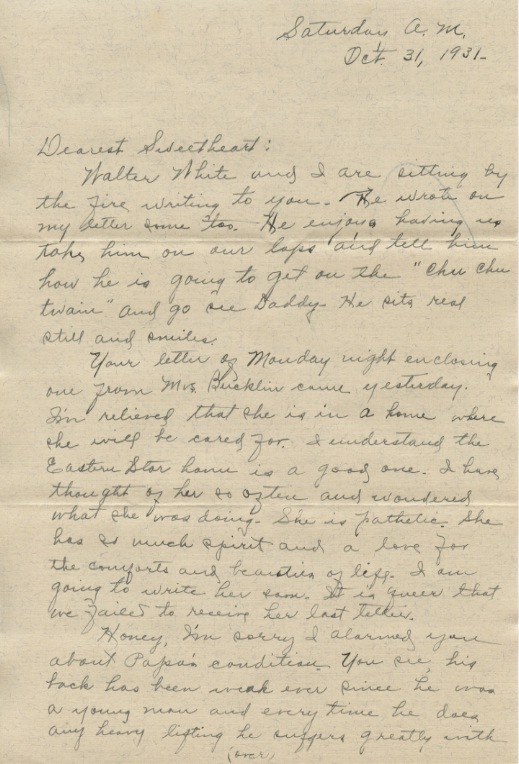 Saturday A.M.
Oct. 31, 1931-
Dearest Sweetheart:
Walter White and I are sitting by
the fire writing to you. He wrote on
my letter some too. He enjoys having us
take him on our laps and tell him
how he is going to get on the "Chu Chu
twain" and go see Daddy. He sits real
still and smiles.
Your letter of Monday night enclosing
one from Mrs. Bucklin came yesterday.
I'm relieved that she is in a home where
she will be cared for. I understand the
Eastern Star home is a good one. I have
thought of her so often and wondered
what she was doing. She is pathetic. She
has so much spirit and a love for
the comforts and beauties of life. I am
going to write her soon. It is queer that
we failed to receive her last letter.
Honey, I'm sorry I alarmed you
about Papa's condition. You see, his
back has been weak ever since he was
a young man and every time he does
any heavy lifting he suffers greatly with
(over)